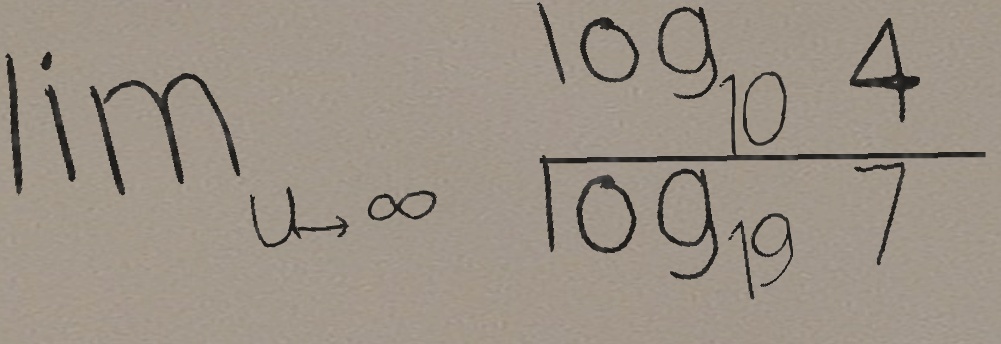 lim_{u→∞} \frac{log_{10} 4}{log_{19} 7}